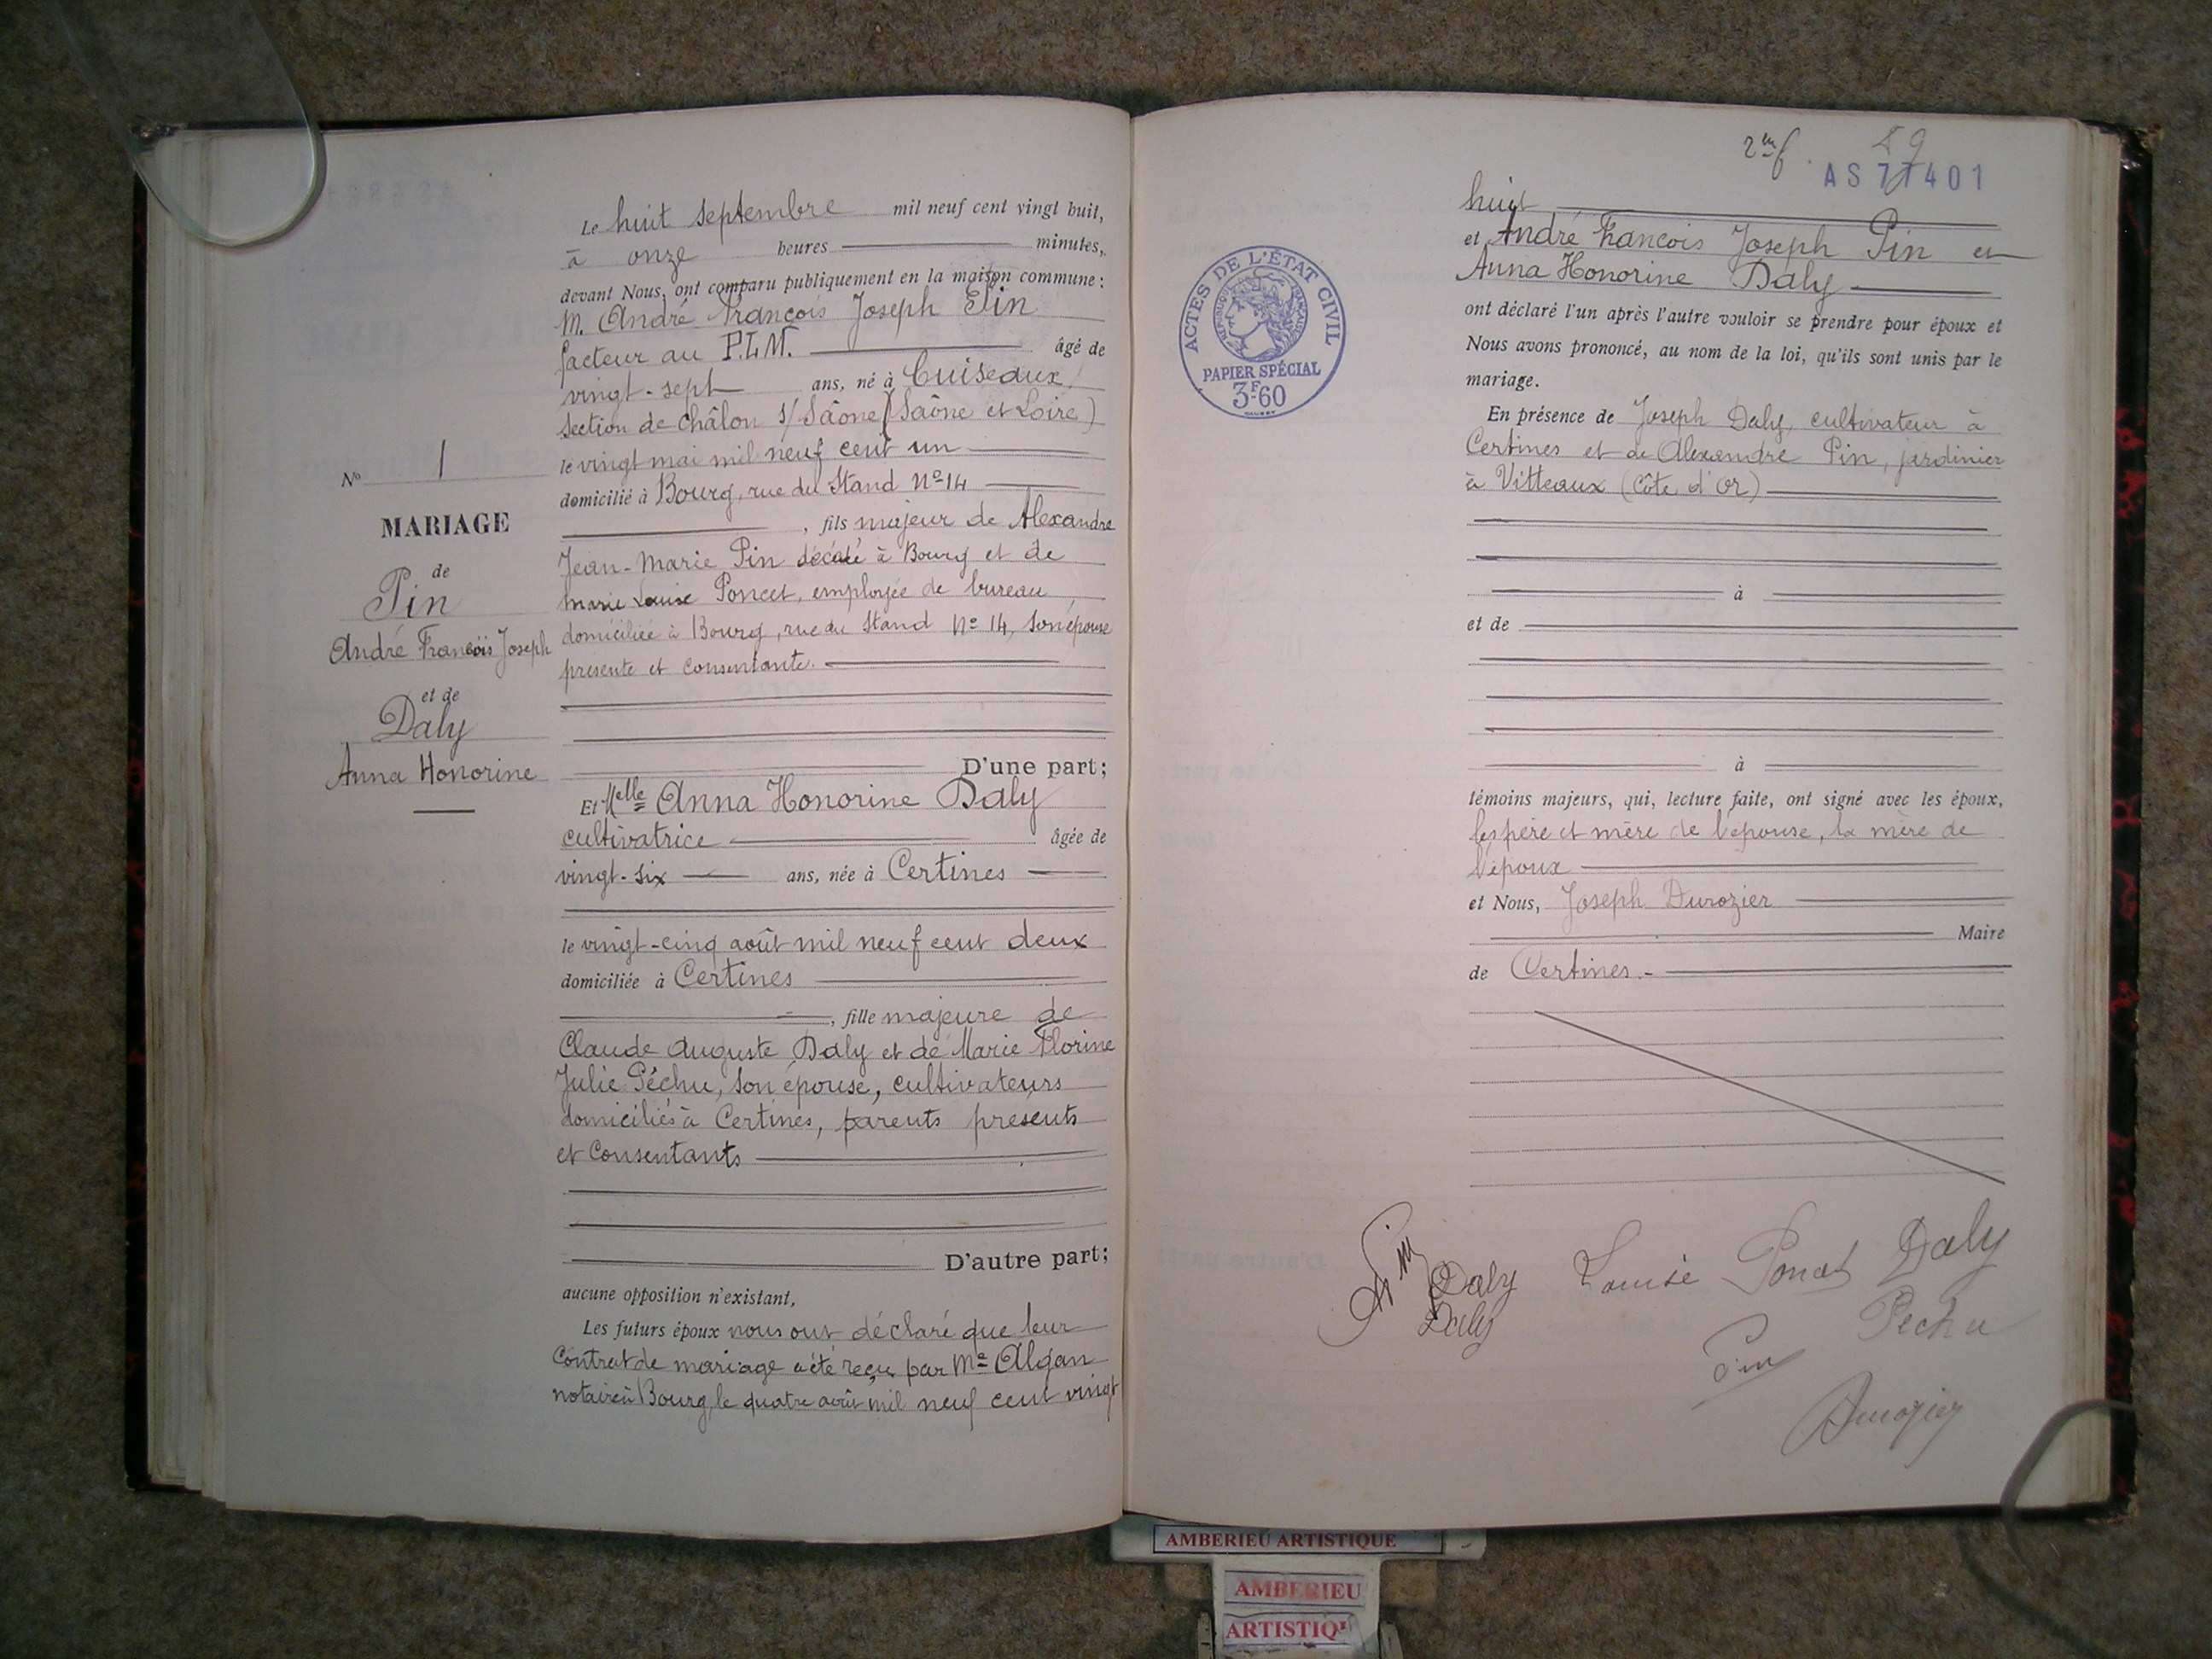 Le huit septembre mil neuf cent vingt huit,
à onze heures minutes,
devant Nous, ont comparu publiquement en la maison commune :
M. André François Joseph Pin
facteur au P.L.M. âgé de
vingt-sept ans, né à Cuiseaux
section de Châlon s/ Saône (Saône et Loire)
le vingt mai mil neuf cent un
domicilié à Bourg, rue du Stand No 14
, fils majeur de Alexandre
Jean-Marie Pin décédé à Bourg et de
Marie Louise Poncet, employée de bureau
domiciliée à Bourg, rue du Stand No 14, son épouse
présente et consentante.
D'une part;
No 1
MARIAGE
de
Pin
André François Joseph
et de
Daly
Anna Honorine
Et Melle Anna Honorine Daly
cultivatrice âgée de
vingt-six ans, née à Certines
le vingt-cinq août mil neuf cent deux
domiciliée à Certines
, fille majeure de
Claude Auguste Daly et de Marie Florine
Julie Péchu, son épouse, cultivateurs
domiciliés à Certines, parents présents
et consentants
D'autre part;
aucune opposition n'existant,
Les futurs époux nous ont déclaré que leur
contrat de mariage a été reçu par Me Algan
notaire à Bourg, le quatre août mil neuf cent vingt
59
AS 77401
huit
et André François Joseph Pin et
Anna Honorine Daly
ont déclaré l'un après l'autre vouloir se prendre pour époux et
Nous avons prononcé, au nom de la loi, qu'ils sont unis par le
mariage.
En présence de Joseph Daly, cultivateur à
Certines et de Alexandre Pin, jardinier
à Vitteaux (Côte d'Or)
à
et de
à
témoins majeurs, qui, lecture faite, ont signé avec les époux,
les père et mère de l'épouse, la mère de
l'époux
et Nous, Joseph Durozier
Maire
de Certines.-
ACTES DE L'ÉTAT CIVIL
RÉPUBLIQUE FRANÇAISE
PAPIER SPÉCIAL
3F60
Pin Daly Louise Poncet Daly
Daly Pechu
Pin
Durozier
AMBERIEU ARTISTIQUE
AMBERIEU
ARTISTIQ